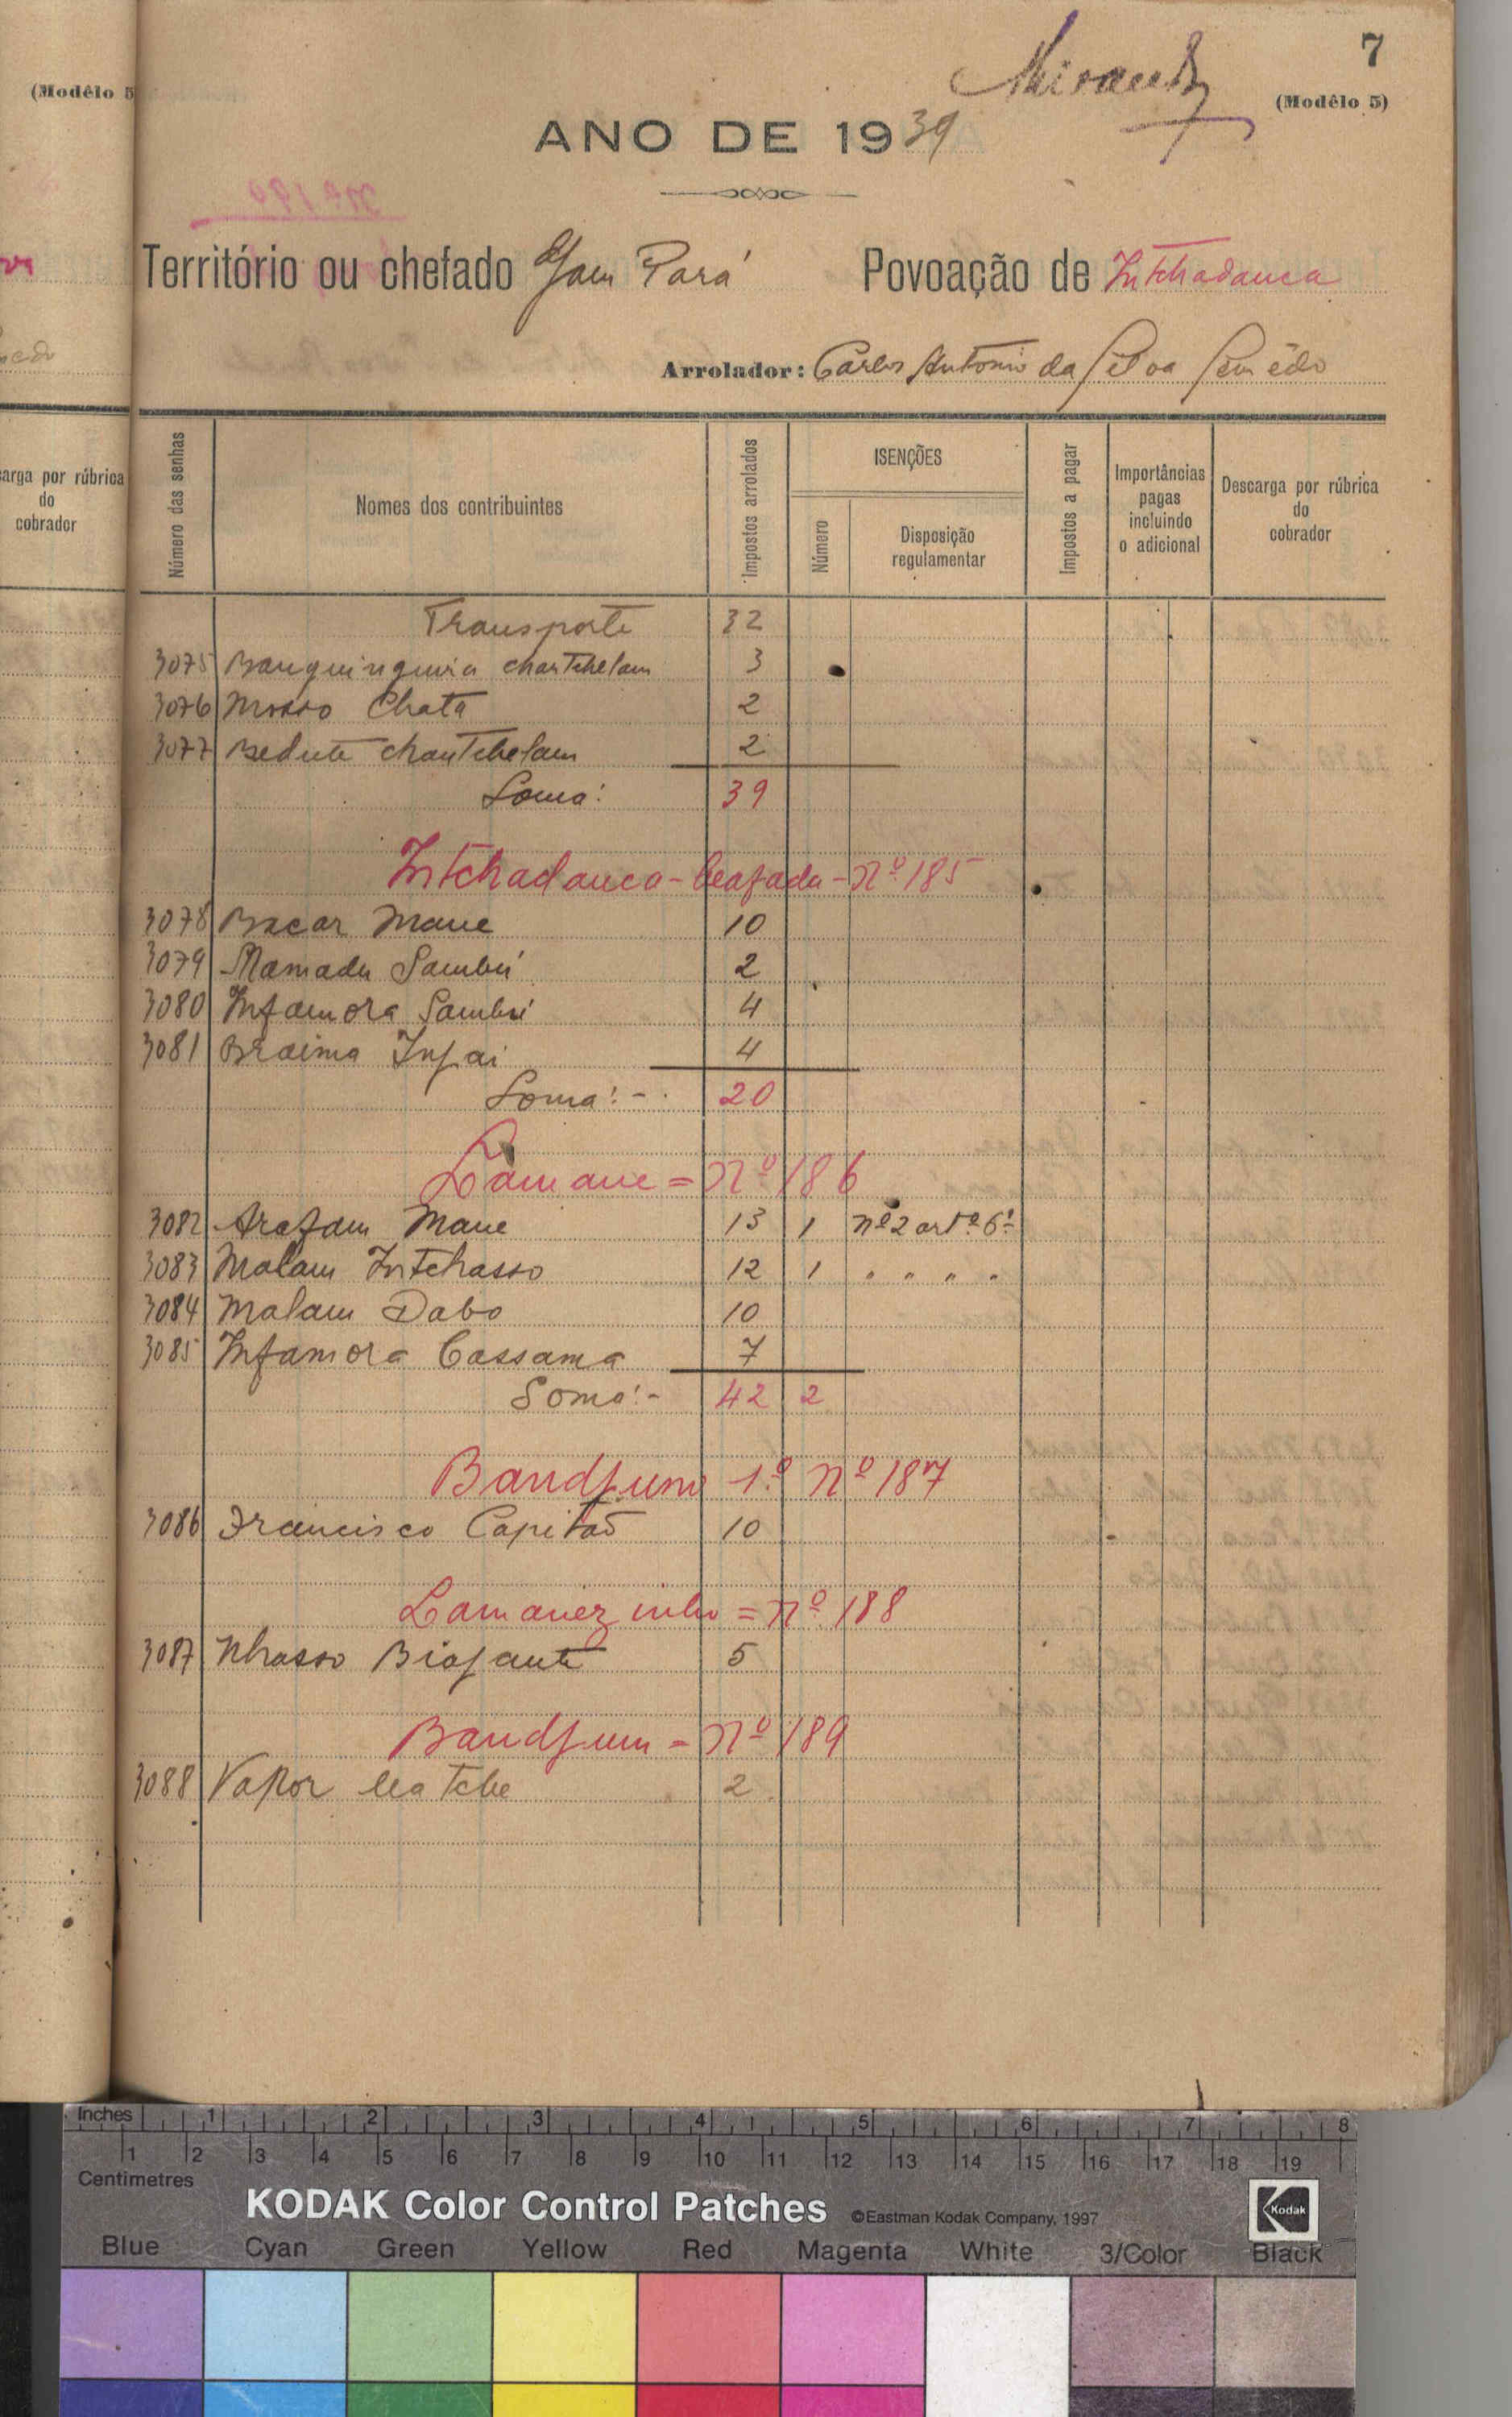 7
(Modêlo 5
(Modêlo 5)
ANO DE 1939
Território ou chefado Gam Pará Povoação de Intchadanca
Arrolador: Carlos Antonio da Silva Semêdo
arga por rúbrica
do
cobrador
Número das senhas
Nomes dos contribuintes
Impostos arrolados
ISENÇÕES
Número
Disposição
regulamentar
Impostos a pagar
Importâncias
pagas
incluindo
o adicional
Descarga por rúbrica
do
cobrador
Transporte 32
3075 3
3076 Mosso Chata 2
3077 Bedute Chantchelam 2
Soma: 39
Intchadanca - beafada - Nº 185
3078 Bacar Mane 10
3079 Mamadu Sambú 2
3080 Infamora Sambú 4
3081 Braima Infai 4
Soma:- 20
Lamane = Nº 186
3082 Arafam Mane 13 1 nº 2 artº 6º
3083 Malam Intchasso 12 1 " " " "
3084 Malam Dabo 10
3085 Infamora Cassama 7
Soma:- 42 2
Bandjum 1º Nº 187
3086 Francisco Capitão 10
Lamanezinho = Nº 188
3087 Nhasso Biafante 5
Bandjum = Nº 189
3088 Vapor 2
Inches 1 2 3 4 5 6 7 8
1 2 3 4 5 6 7 8 9 10 11 12 13 14 15 16 17 18 19
Centimetres
KODAK Color Control Patches ©Eastman Kodak Company, 1997 Kodak
Blue Cyan Green Yellow Red Magenta White 3/Color Black